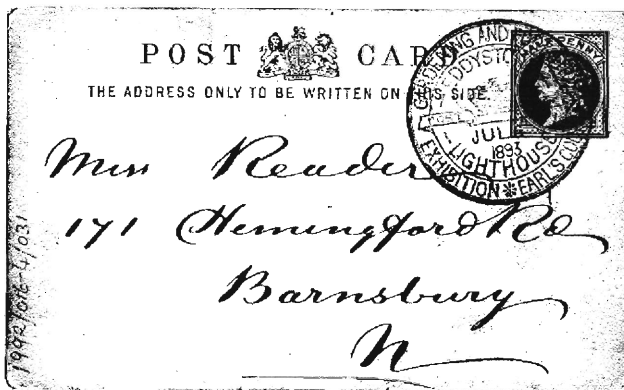 POST CARD
THE ADDRESS ONLY TO BE WRITTEN ON THIS SIDE.
GARDENING AND
EDDYSTONE
JUL
1893
LIGHTHOUSE
EXHIBITION EARL'S COURT
HALFPENNY
Miss Reader
171 Hemingford Rd
Barnsbury
N
1992/016-4/031